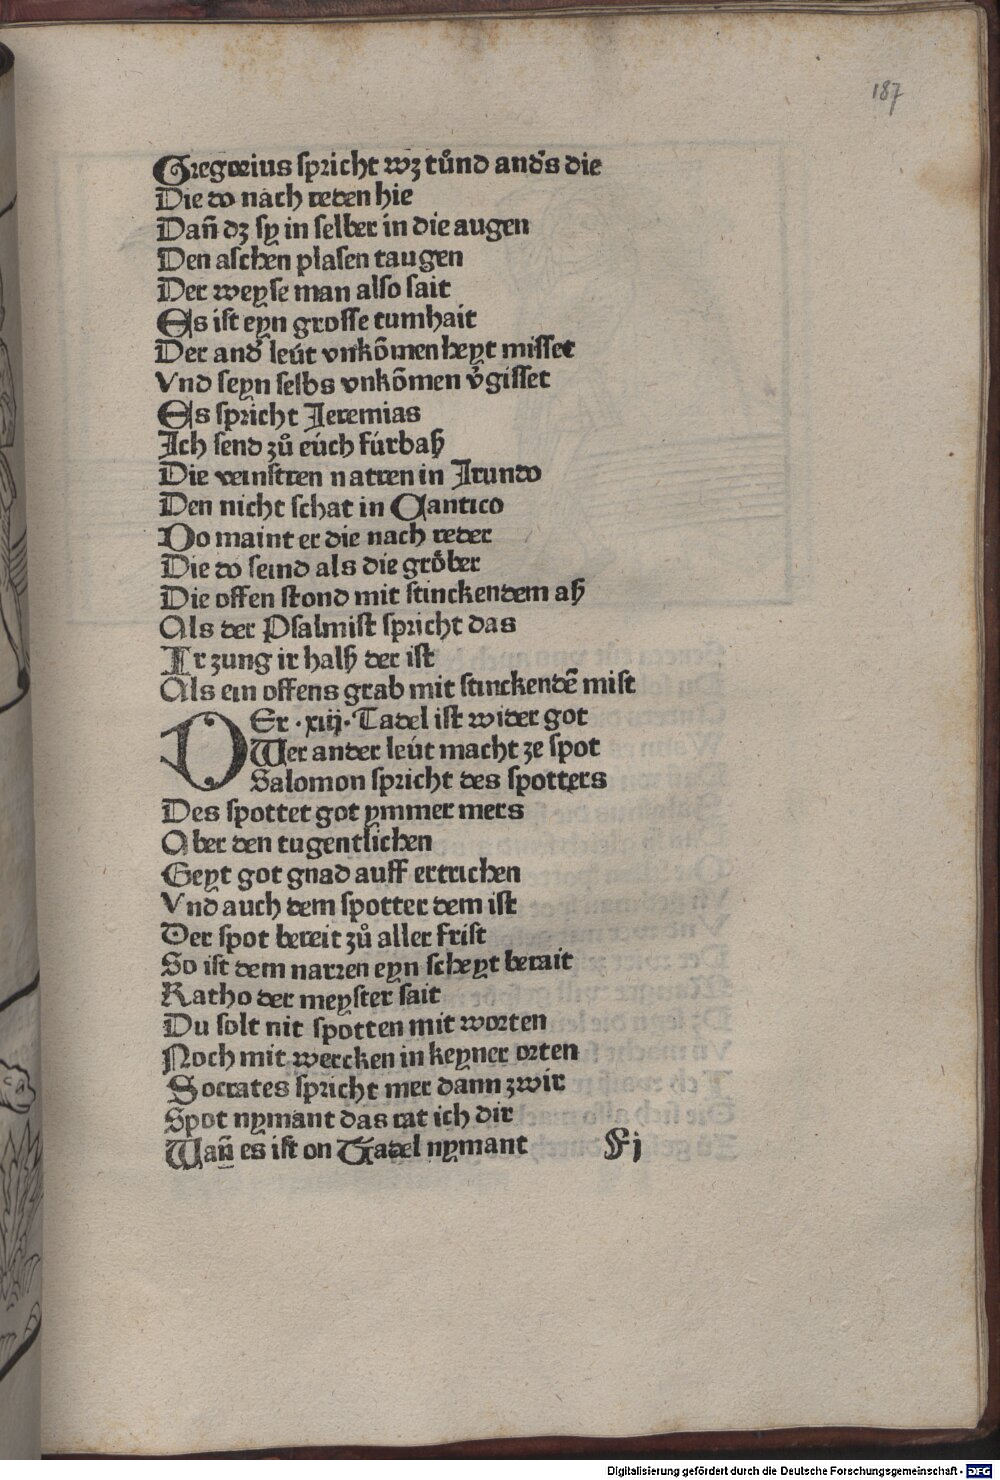 187
Gregorius spricht wz tůnd anďs die
Die do nach reden hie
Dañ dz sy in selber in die augen
Den aschen plasen taugen
Der weyse man also sait
Es ist eyn grosse tumhait
Der anď leút vnkõmenheyt misset
Vnd seyn selbs vnkõmen v̉gisset
Es spricht Jeremias
Ich send zů eúch fúrbaß
Die veinstren natren in Irundo
Den nicht schat in Cantico
Do maint er die nach reder
Die do seind als die grôber
Die offen stond mit stinckendem aß
Als der Psalmist spricht das
Ir zung ir halß der ist
Als ein offens grab mit stinckendẽ mist
DEr .xiij. Tadel ist wider got
Wer ander leút macht ze spot
Salomon spricht des spotters
Des spottet got ymmer mers
Aber den tugentlichen
Geyt got gnad auff ertrichen
Vnd auch dem spotter dem ist
Der spot bereit zů aller frist
So ist dem narren eyn scheyt berait
Katho der meyster sait
Du solt nit spotten mit worten
Noch mit wercken in keyner orten
Socrates spricht mer dann zwir
Spot nymant das rat ich dir
Wañ es ist on Tadel nymant Fj
Digitalisierung gefördert durch die Deutsche Forschungsgemeinschaft - DFG